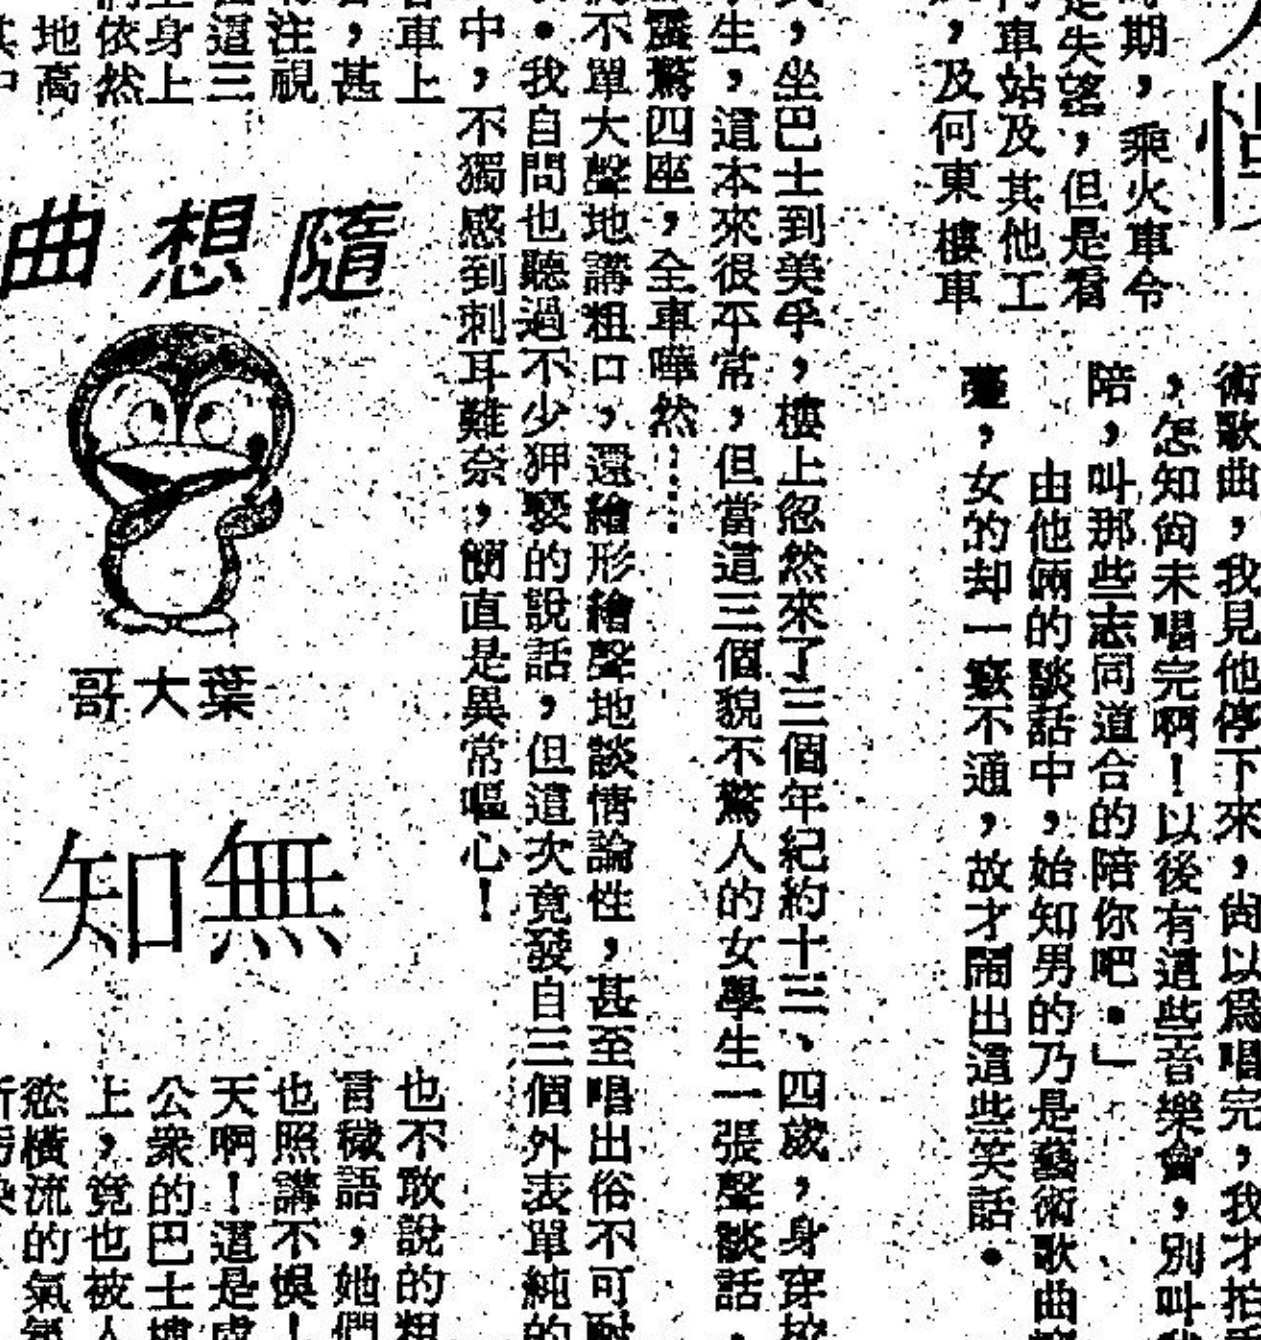 期，乘火車令
是失望，但是看
車站及其他工
，及何東樓車
術歌曲，我見他停下來，尙以爲唱完，我才拍
，怎知尙未唱完啊！以後有這些音樂會，別叫
陪，叫那些志同道合的陪你吧。」
由他倆的談話中，始知男的乃是藝術歌曲
，女的却一竅不通，故才鬧出這些笑話。
，坐巴士到美孚，樓上忽然來了三個年紀約十三、四歲，身穿校
生，這本來很平常，但當這三個貌不驚人的女學生一張聲談話，
震驚四座，全車嘩然……
不單大聲地講粗口，還繪形繪聲地談情論性，甚至唱出俗不可耐
。我自問也聽過不少狎褻的說話，但這次竟發自三個外表單純的
中，不獨感到刺耳難奈，簡直是異常嘔心！
隨想曲
葉大哥
無知
車上
，甚
注視
這三
身上
依然
地高
其中
也不敢說的粗
言穢語，她們
也照講不悞！
天啊！這是處
公衆的巴士樓
上，竟也被人
慾橫流的氣氛